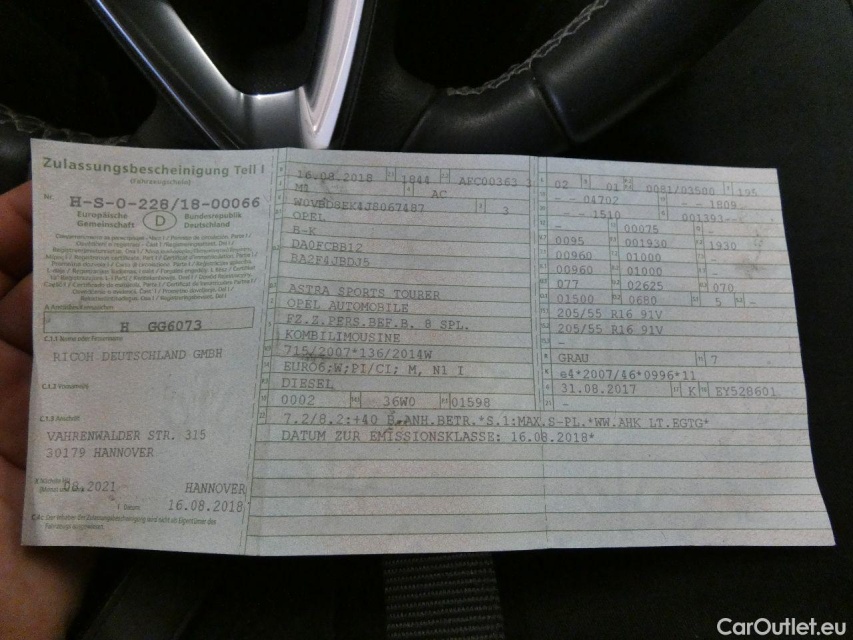 Zulassungsbescheinigung Teil I
(Fahrzeugschein)
Nr. H-S-0-228/18-00066
Europäische Gemeinschaft
D
Bundesrepublik Deutschland
H GG6073
C.1.1 Name oder Firmenname
RICOH DEUTSCHLAND GMBH
C.1.2 Vorname(n)
C.1.3 Anschrift
VAHRENWALDER STR. 315
30179 HANNOVER
08.2021
HANNOVER
Datum
16.08.2018
16.08.2018 1844 AFC00363 3
M1 AC
W0VBD8EK4J8067487 3
OPEL
B-K
DA0FCBB12
BA2F4JBDJ5
ASTRA SPORTS TOURER
OPEL AUTOMOBILE
FZ.Z.PERS.BEF.B. 8 SPL.
KOMBILIMOUSINE
715/2007*136/2014W
EURO6;W;PI/CI; M, N1 I
DIESEL
0002 36W0 01598
7.2/8.2:+40 B.ANH.BETR.*S.1:MAX.5-PL.*WW.AHK LT.EGTG*
DATUM ZUR EMISSIONSKLASSE: 16.08.2018*
02 01 0081/03500 195
04702 1809
1510 001393
00075
0095 001930 1930
00960 01000
00960 01000
077 02625 070
01500 0680 5
205/55 R16 91V
205/55 R16 91V
GRAU 7
e4*2007/46*0996*11
31.08.2017 K EY528601
CarOutlet.eu